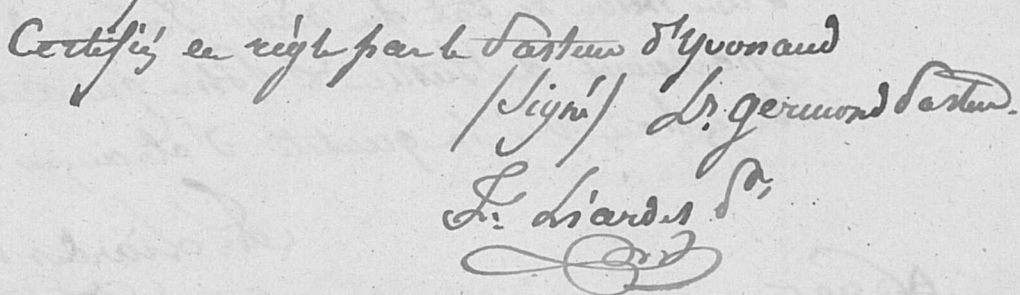 Certifié en règle par le Pasteur d'Yvonand
(Signé) Ls. Germond Pasteur.
Fs. Liardet Pr.